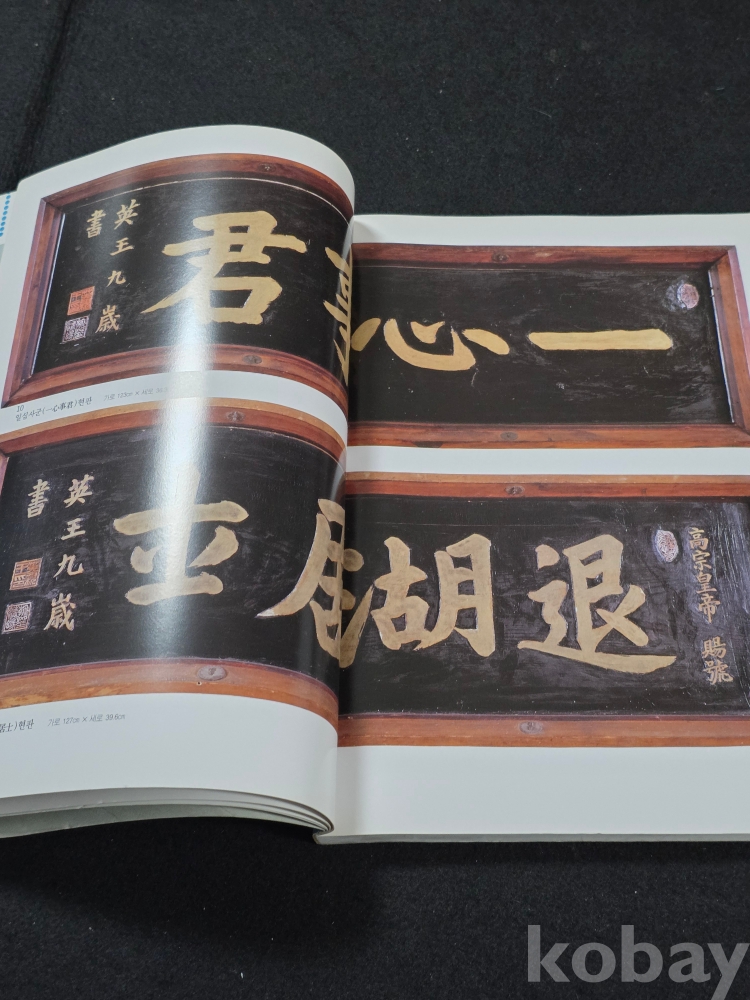 一心事君
英王九歲
書
10
일심사군(一心事君)현판 가로 123cm × 세로
高宗皇帝 賜號
退湖居士
英王九歲
書
居士)현판 가로 127cm × 세로 39.6cm
kobay